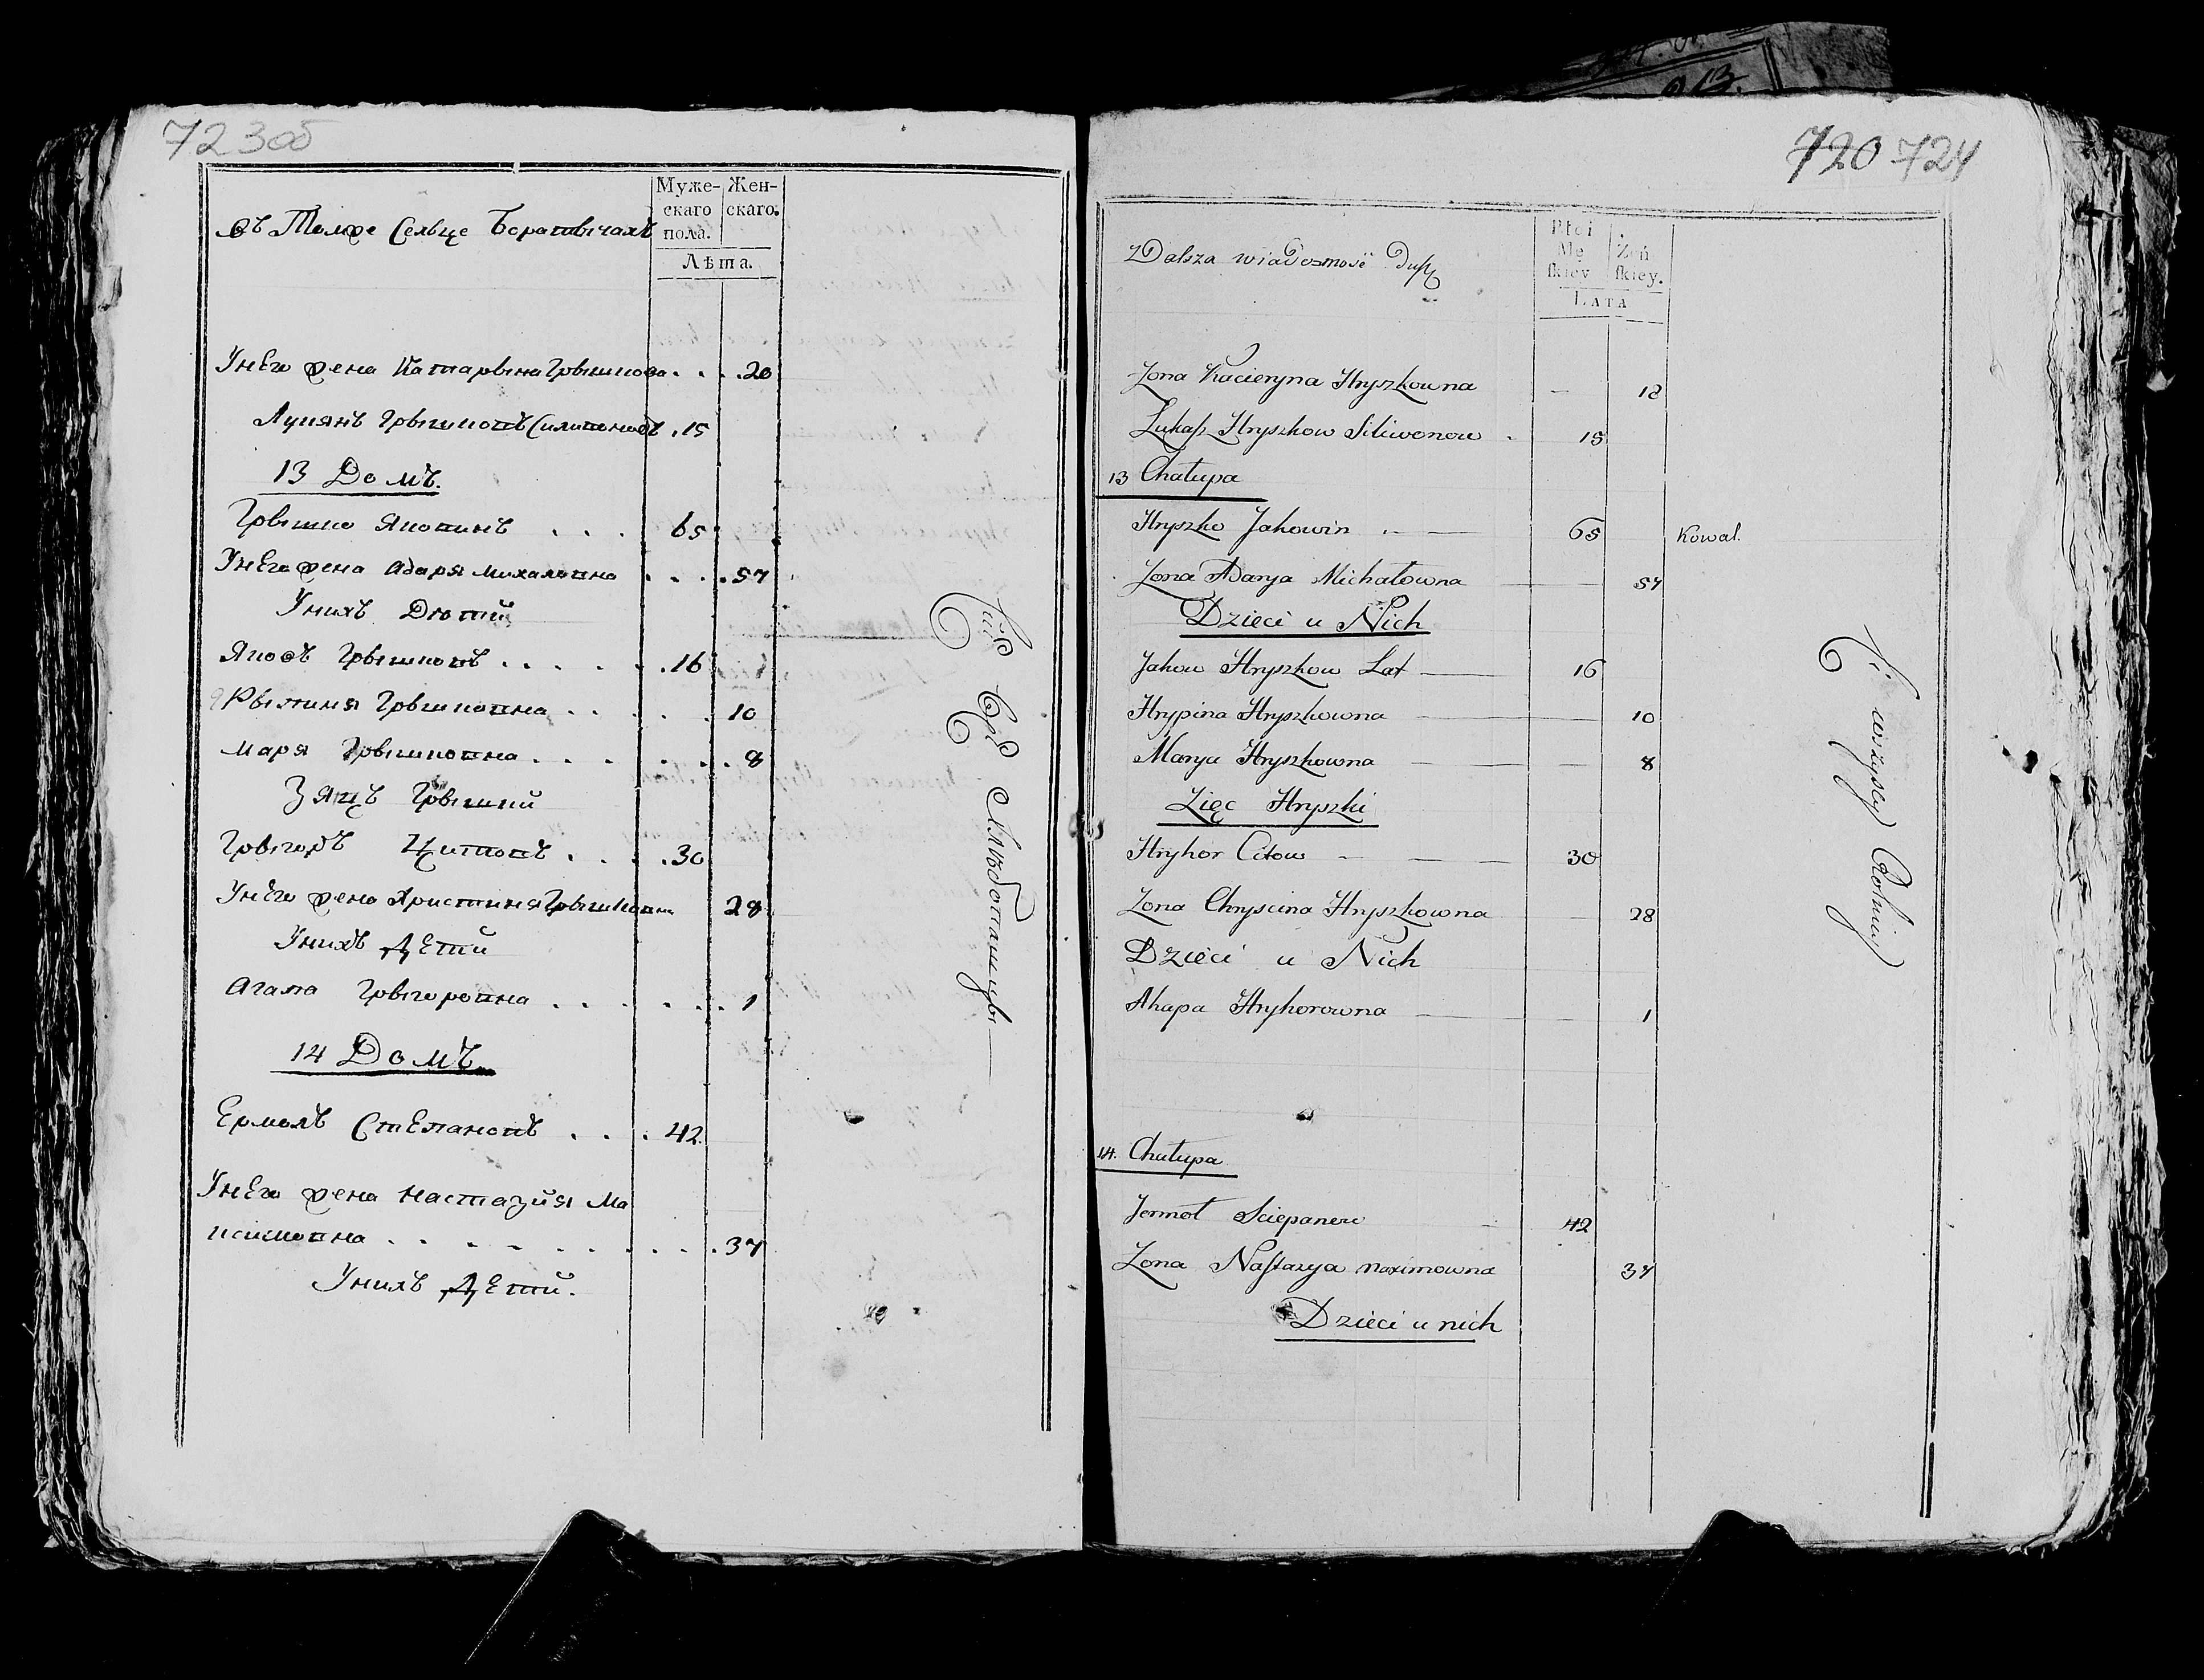 723об
въ Томже Сельце Боратвичахъ
Муже-
скаго
пола.
Жен-
скаго.
Лѣта.
Унего жена Катарына Грышкова . . . 20
Лукянъ Грышковъ Силивоновъ . 15
13 Домъ.
Грышко Яковинъ . . . 65
Унего жена Адаря михаловна . . . . 57
Унихъ Дютий
Яковъ Грышковъ . . . . . . 16
Рыпиня Грышковна . . . . . 10
Маря Грышковна . . . . . . . 8
Зяцъ Грышки
Грыгоръ Цитовъ . . . . 30
Унего жена Христиня Грышковна 28
Унихъ дЕтий
Агапа Грыгоровна . . . . . . . 1
14 Домъ.
Ермолъ СтЕпановъ . . . . 42.
Унего жена Настазийя Ма
ксимовна . . . . . . . . . . 37
Унихъ дЕтий.
Сии Всѣ Хлѣбопашцы
913.
720 724
Dalsza wiadomość Dusz
Płci
Mę
skiey
Żeń
skiey.
Lata
Zona Kacieryna Hryszkowna — 18
Łukasz Hryszkow Siliwonow 15
13 Chałupa
Hryszko Jakowin — 65 Kowal.
Zona ADarya Michałowna — 57
Dzieci u Nich
Jakow Hryszkow Lat — 16
Hrypina Hryszkowna — 10
Marya Hryszkowna — 8
Zięc Hryszki
Hryhor Citow — 30
Zona Chryscina Hryszkowna — 28
Dzieci u Nich
Ahapa Hryhorowna — 1
14. Chałupa
Jermoł Sciepanow 42
Zona Nastazya Maximowna 37
Dzieci u nich
Ci wszyscy Rolnicy